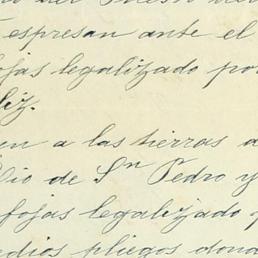 espresan ante el
fojas legalizado por
liz.
en a las tierras a
Rio de Sn Pedro y
fojas legalizado
edios pliegos dona